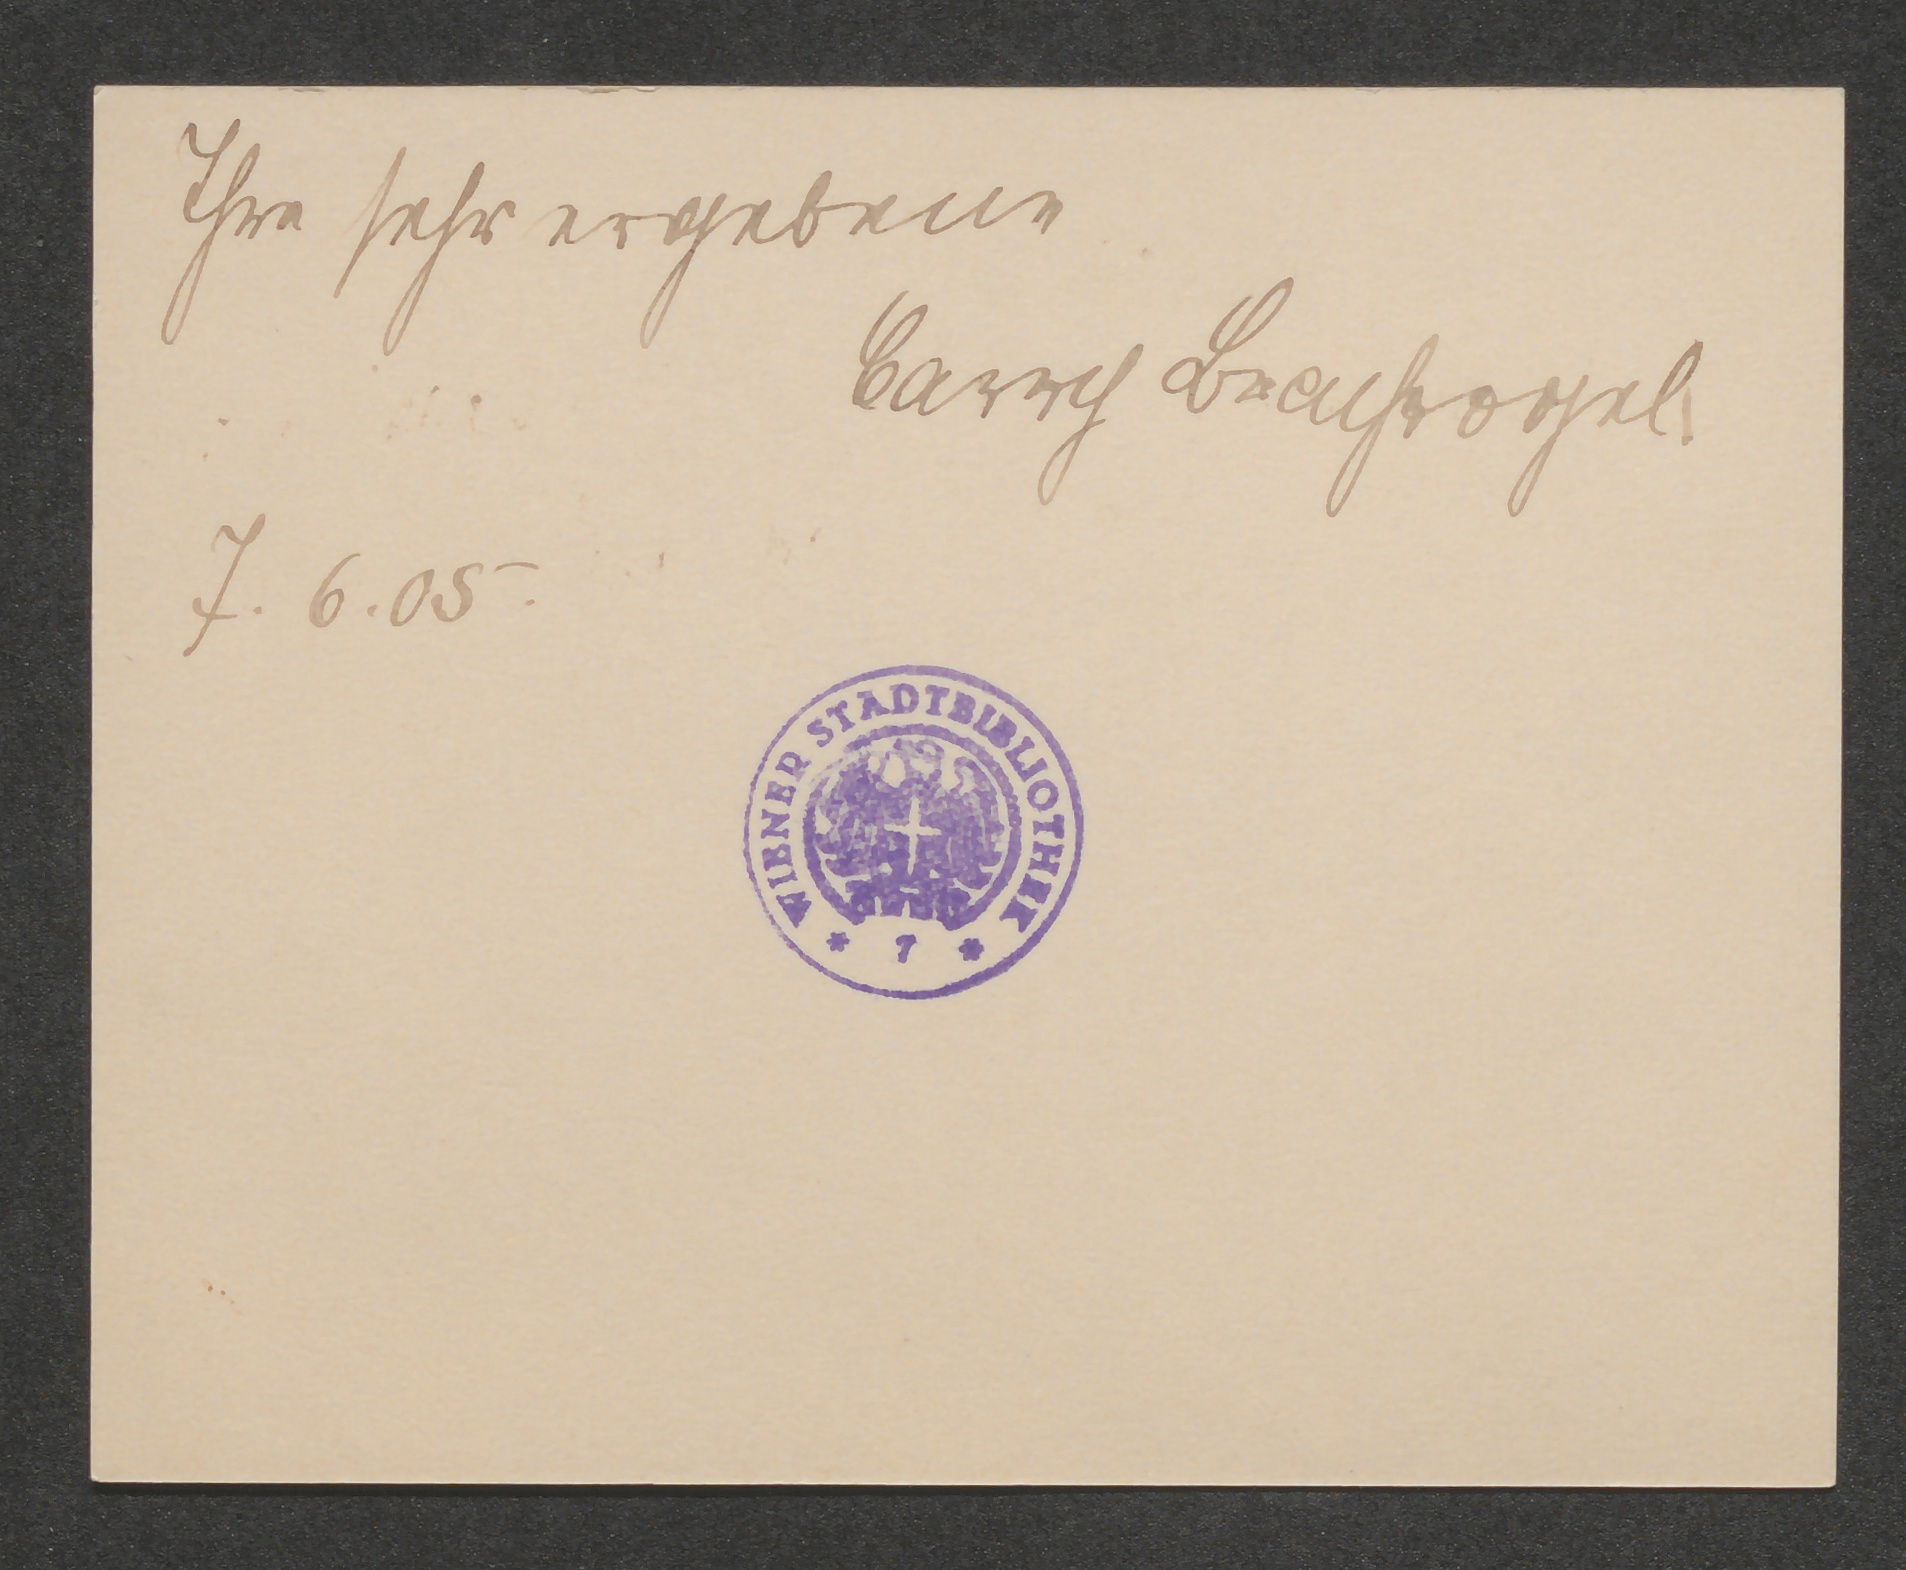 Ihre sehr ergebene
Carry Brachvogel.
7. 6. 05.
WIENER STADTBIBLIOTHEK
* 7 *